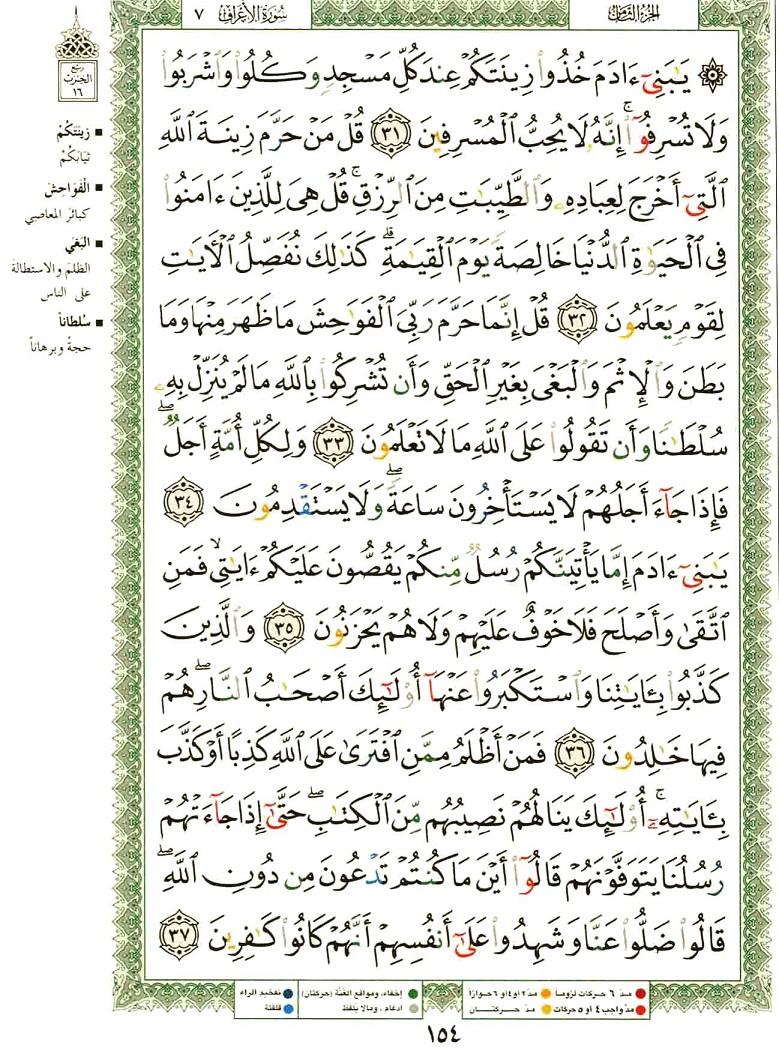 الجزء الثامن
سورة الأعراف ٧
۞ يَـٰبَنِىٓ ءَادَمَ خُذُوا۟ زِينَتَكُمْ عِندَ كُلِّ مَسْجِدٍ وَكُلُوا۟ وَٱشْرَبُوا۟
وَلَا تُسْرِفُوٓا۟ ۚ إِنَّهُۥ لَا يُحِبُّ ٱلْمُسْرِفِينَ ٣١ قُلْ مَنْ حَرَّمَ زِينَةَ ٱللَّهِ
ٱلَّتِىٓ أَخْرَجَ لِعِبَادِهِۦ وَٱلطَّيِّبَـٰتِ مِنَ ٱلرِّزْقِ ۚ قُلْ هِىَ لِلَّذِينَ ءَامَنُوا۟
فِى ٱلْحَيَوٰةِ ٱلدُّنْيَا خَالِصَةً يَوْمَ ٱلْقِيَـٰمَةِ ۗ كَذَٰلِكَ نُفَصِّلُ ٱلْـَٔايَـٰتِ
لِقَوْمٍ يَعْلَمُونَ ٣٢ قُلْ إِنَّمَا حَرَّمَ رَبِّىَ ٱلْفَوَٰحِشَ مَا ظَهَرَ مِنْهَا وَمَا
بَطَنَ وَٱلْإِثْمَ وَٱلْبَغْىَ بِغَيْرِ ٱلْحَقِّ وَأَن تُشْرِكُوا۟ بِٱللَّهِ مَا لَمْ يُنَزِّلْ بِهِۦ
سُلْطَـٰنًا وَأَن تَقُولُوا۟ عَلَى ٱللَّهِ مَا لَا تَعْلَمُونَ ٣٣ وَلِكُلِّ أُمَّةٍ أَجَلٌ ۖ
فَإِذَا جَآءَ أَجَلُهُمْ لَا يَسْتَأْخِرُونَ سَاعَةً ۖ وَلَا يَسْتَقْدِمُونَ ٣٤
يَـٰبَنِىٓ ءَادَمَ إِمَّا يَأْتِيَنَّكُمْ رُسُلٌ مِّنكُمْ يَقُصُّونَ عَلَيْكُمْ ءَايَـٰتِى ۙ فَمَنِ
ٱتَّقَىٰ وَأَصْلَحَ فَلَا خَوْفٌ عَلَيْهِمْ وَلَا هُمْ يَحْزَنُونَ ٣٥ وَٱلَّذِينَ
كَذَّبُوا۟ بِـَٔايَـٰتِنَا وَٱسْتَكْبَرُوا۟ عَنْهَآ أُو۟لَـٰٓئِكَ أَصْحَـٰبُ ٱلنَّارِ ۖ هُمْ
فِيهَا خَـٰلِدُونَ ٣٦ فَمَنْ أَظْلَمُ مِمَّنِ ٱفْتَرَىٰ عَلَى ٱللَّهِ كَذِبًا أَوْ كَذَّبَ
بِـَٔايَـٰتِهِۦٓ ۚ أُو۟لَـٰٓئِكَ يَنَالُهُمْ نَصِيبُهُم مِّنَ ٱلْكِتَـٰبِ ۖ حَتَّىٰٓ إِذَا جَآءَتْهُمْ
رُسُلُنَا يَتَوَفَّوْنَهُمْ قَالُوٓا۟ أَيْنَ مَا كُنتُمْ تَدْعُونَ مِن دُونِ ٱللَّهِ ۖ
قَالُوا۟ ضَلُّوا۟ عَنَّا وَشَهِدُوا۟ عَلَىٰٓ أَنفُسِهِمْ أَنَّهُمْ كَانُوا۟ كَـٰفِرِينَ ٣٧
ربع
الحزب
١٦
■ زِينَتَكُمْ
ثيابَكُمْ
■ الْفَوَاحِشَ
كبائرَ المعاصي
■ الْبَغْيَ
الظلم والاستطالة
على الناس
■ سُلطاناً
حجةً وبرهاناً
مدّ ٦ حركات لزوماً
مدّ ٢ أو ٤ أو ٦ جوازاً
إخفاء، ومواقع الغُنَّة (حركتان)
تفخيم الراء
مدّ واجب ٤ أو ٥ حركات
مدّ حركتان
ادغام، ومالا يلفظ
قلقلة
١٥٤